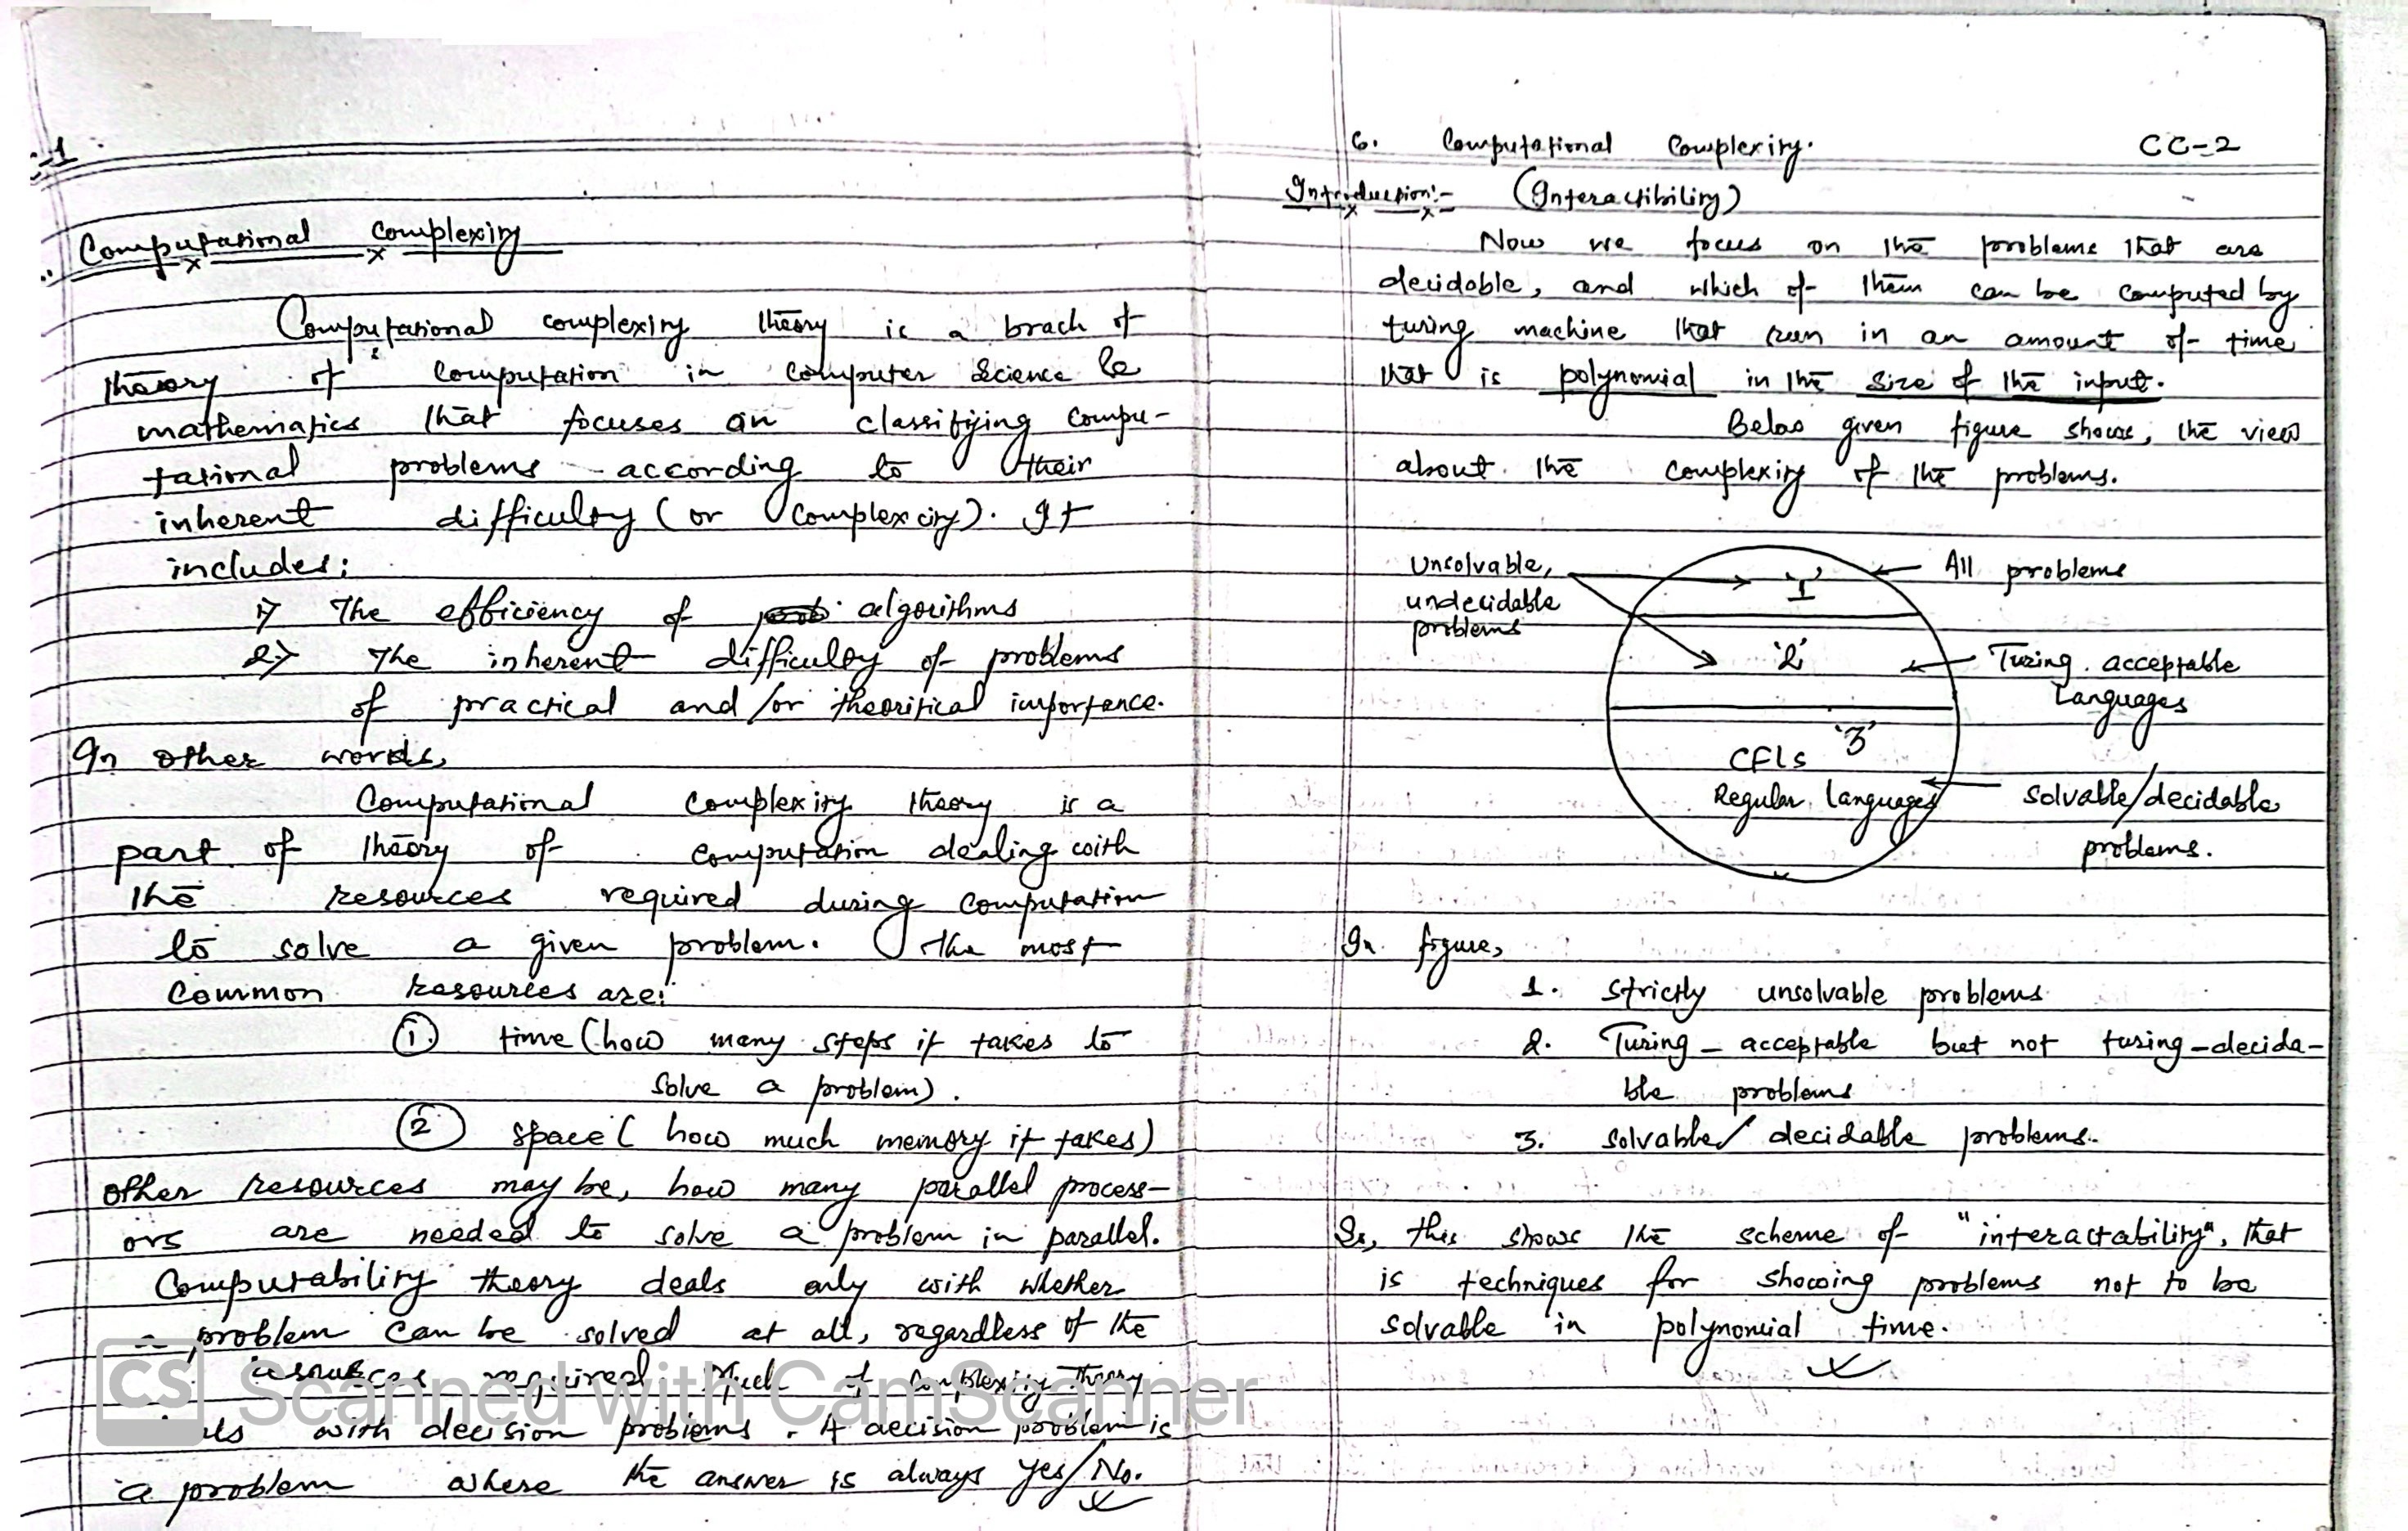 :-1
Computational complexity
Computational complexity theory is a brach of
theory of computation in computer Science &
mathematics that focuses on classifying compu-
tational problems according to their
inherent difficulty (or complexcity). It
includes:
1> The efficiency of algorithms
2> The inherent difficulty of problems
of practical and/or theoritical importance.
In other words,
Computational complexity theory is a
part of theory of computation dealing with
the resources required during computation
to solve a given problem. The most
common resources are:
① time (how many steps it takes to
solve a problem).
② space ( how much memory it takes)
other resources may be, how many parallel process-
ors are needed to solve a problem in parallel.
Computability theory deals only with whether
a problem can be solved at all, regardless of the
resources required. Much of complexity theory
with decision problems. A decision problem is
a problem where the answer is always Yes/No.
CS Scanned with CamScanner
6. Computational Complexity. CC-2
Introduction:- (Interactibility)
Now we focus on the problems that are
decidable, and which of them can be computed by
turing machine that run in an amount of time
that is polynomial in the size of the input.
Below given figure shows, the view
about the complexity of the problems.
Unsolvable,
undecidable
problems
'1'
All problems
'2'
Turing acceptable
Languages
'3'
CFLs
Regular languages
solvable/decidable
problems.
In figure,
1. Strictly unsolvable problems
2. Turing-acceptable but not turing-decida-
ble problems
3. solvable/ decidable problems.
So, this shows the scheme of "interactability", that
is techniques for showing problems not to be
solvable in polynomial time.